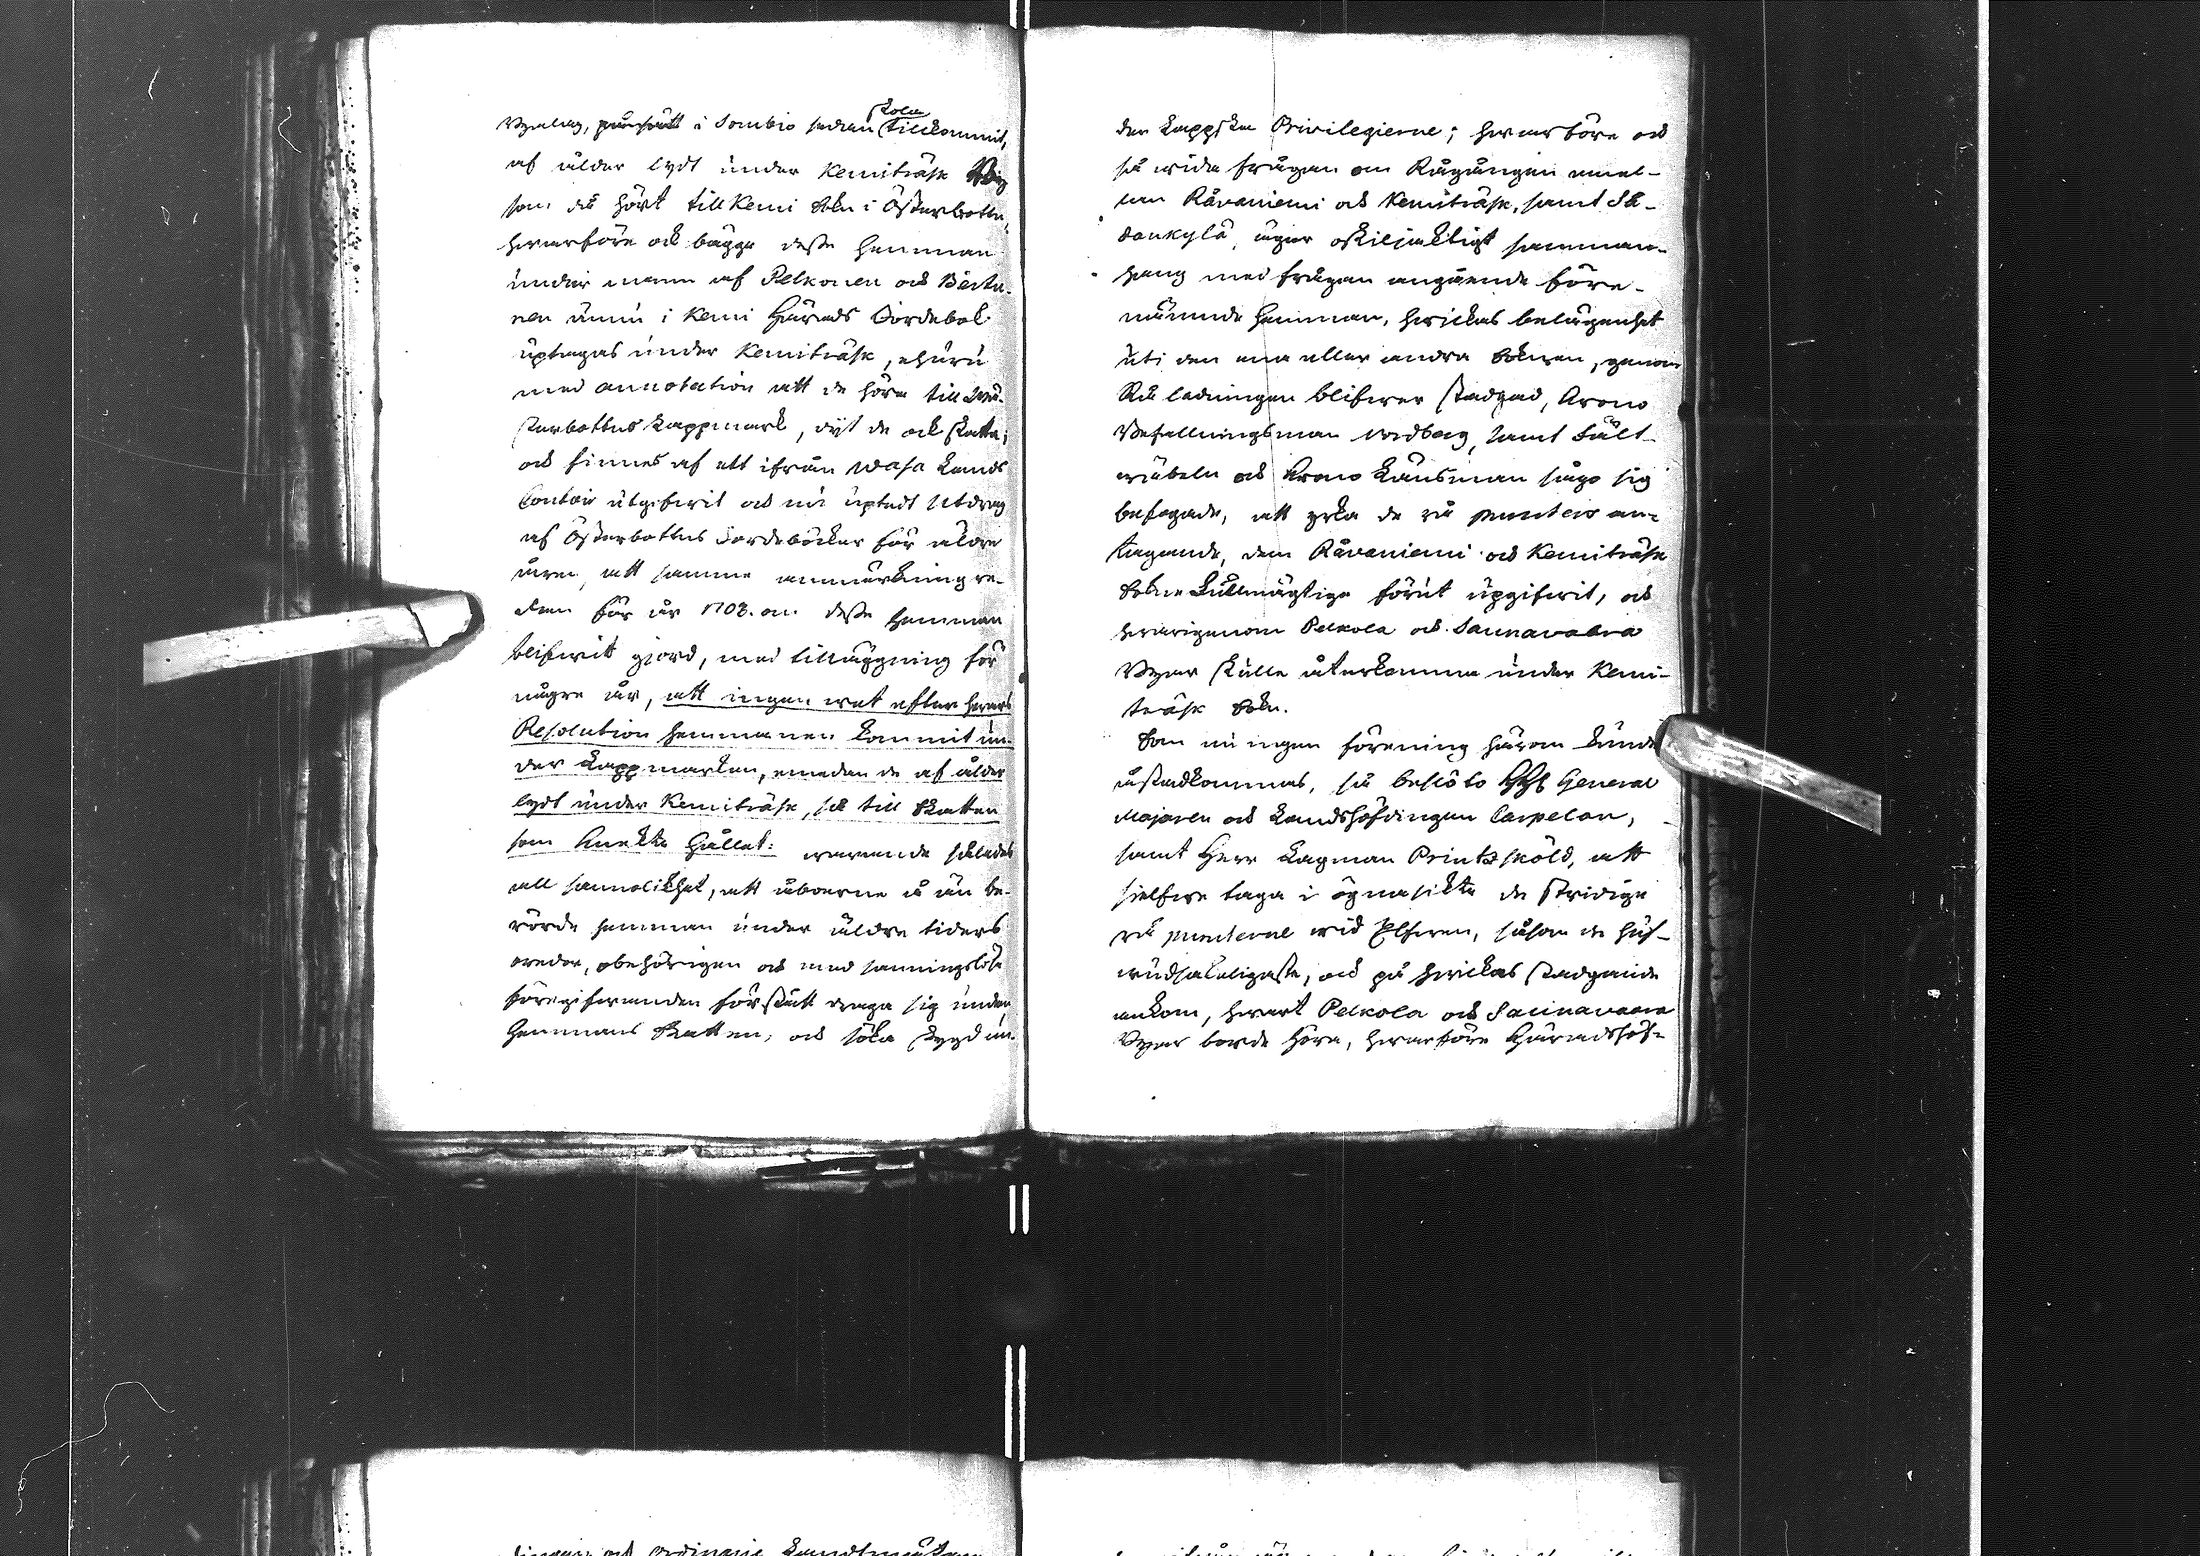 Byalag, i Sombio sedan skola tillkommit,
af ålder lydt under Kemiträsk By
som då hört till Kemi Sokn i Österbottn,
hwarföre ock bägge desse Hemman
under namn af Pelkonen och Bärta-
nen ännu i Kemi Härads Jordebok
uptagas under Kemiträsk, ehuru
med annotation att de höra till Wä-
sterbottns Lappmark, dit de ock skatta;
och finnes af ett ifrån Wasa Lands
Contoir utgifwit och nu uptedt Utdrag
af Österbottns Jordeböcker för äldre
åren, att samma anmärkning re-
dan för år 1708. om desse Hemman
blifwit gjord, med tilläggning för
några år, att ingen wet efter hwars
Resolution hemmanen kommit un-
der Lappmarken, emedan de af ålder
lydt under Kemiträsk, så till Skatten
som Knekte Hållet: warande således
all sannolikhet, att åboerne å än be-
rörde hemman under äldre tiders
oredor, obehörigen och med sanningslöse
föregifwanden förstått draga sig undan
Hemmans Skatten, och söka skygd un-
der Lappska Privilegierne; hwarföre och
så wida frågan om Rågången emel-
lan Råvaniemi och Kemiträsk, samt So-
dankylä, äger oskiljaktigt samman-
hang med frågan angående före-
nämnde Hemman, hwilkas belägenhet
uti den ena eller andra Soknen, genom
Rå ledningen blifwer stadgad, Krono
Befallningsman Nordberg, samt Fält-
wäbeln och Krono Länsman sågo sig
befogade, att yrka de rå puncters an-
tagande, dem Råvaniemi och Kemiträsk
Sokne Fullmägtige förut upgifwit, och
hwarigenom Pelkola och Saunavaara
Byar skulle återkomma under Kemi-
träsk Sokn.
Som nu ingen förening härom kunde
åstadkommas, så beslöto General
Majoren och Landshöfdingen Carpelan,
samt Herr Lagman Printzsköld, att
sjelfwe taga i ögnasikte de stridige
rå puncterne wid Elfwen, såsom de huf-
wudsakeligaste, och på hwilkas stadgande
ankom, hwart Pelkola och Saunavaara
Byar borde höra, hwarföre Häradshöf-
ordinarie Landtmätare